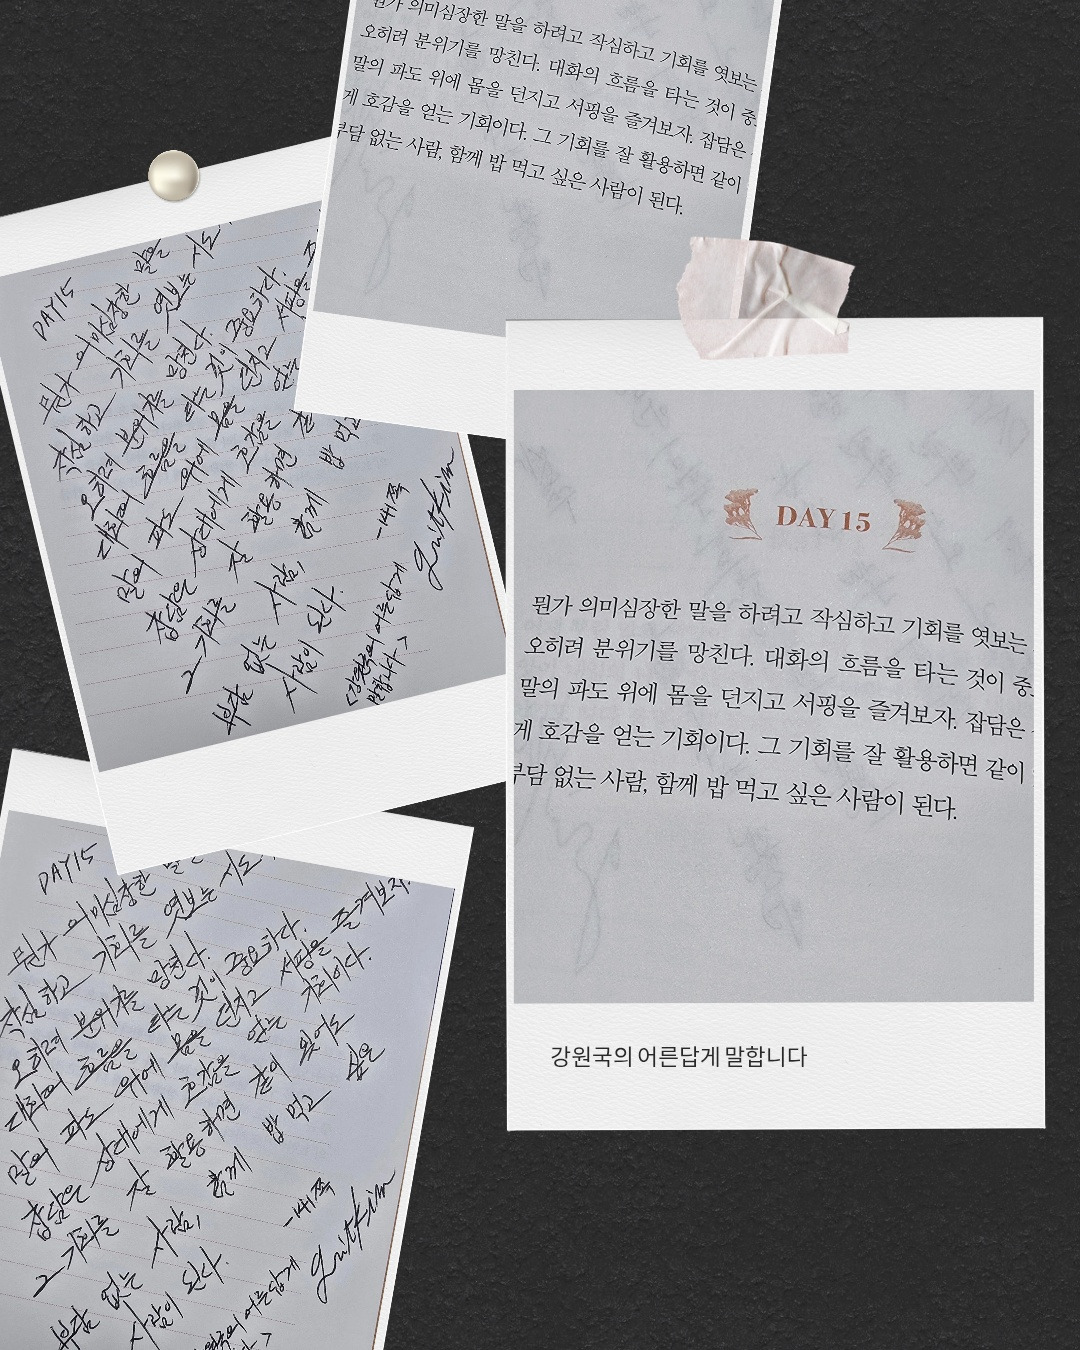 뭔가 의미심장한 말을 하려고 작심하고 기회를 엿보는
오히려 분위기를 망친다. 대화의 흐름을 타는 것이 중
말의 파도 위에 몸을 던지고 서핑을 즐겨보자. 잡담은
게 호감을 얻는 기회이다. 그 기회를 잘 활용하면 같이
부담 없는 사람, 함께 밥 먹고 싶은 사람이 된다.
DAY15
뭔가 의미심장한 말을
작심하고 기회를 엿보는 시도
오히려 분위기를 망친다.
대화의 흐름을 타는 것이 중요하다.
말의 파도 위에 몸을 던지고 서핑을
잡담은 상대에게 호감을 얻는
그 기회를 잘 활용하면 같
부담 없는 사람, 함께 밥 먹고
사람이 된다.
<강원국의 어른답게
말합니다>
DAY 15
뭔가 의미심장한 말을 하려고 작심하고 기회를 엿보는
오히려 분위기를 망친다. 대화의 흐름을 타는 것이 중
말의 파도 위에 몸을 던지고 서핑을 즐겨보자. 잡담은
게 호감을 얻는 기회이다. 그 기회를 잘 활용하면 같이
부담 없는 사람, 함께 밥 먹고 싶은 사람이 된다.
강원국의 어른답게 말합니다
DAY15
뭔가 의미심장한 말은
작심하고 기회를 엿보는 시도
오히려 분위기를 망친다.
대화의 흐름을 타는 것이 중요하다.
말의 파도 위에 몸을 던지고 서핑을 즐겨보자.
잡담은 상대에게 호감을 얻는 기회이다.
그 기회를 잘 활용하면 같이 있어도
부담 없는 사람, 함께 밥 먹고 싶은
사람이 된다.
어른답게